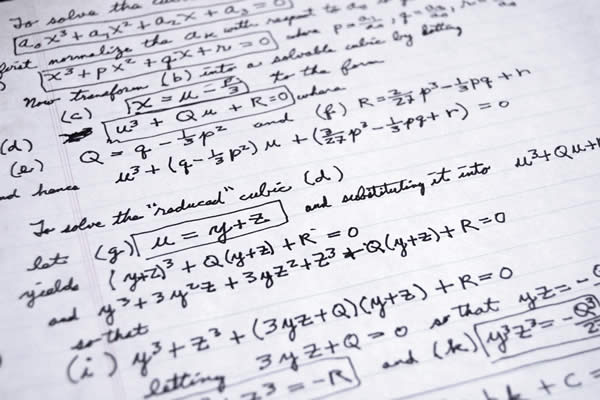 To solve the
a₀x³ + a₁x² + a₂x + a₃ = 0
first normalize the aₖ with respect to a₀
x³ + px² + qx + r = 0 where p = a₁/a₀, q =
Now transform (b) into a solvable cubic by letting
(c) x = u − p/3 to the form
(d) u³ + Qu + R = 0 where
(e) Q = q − ⅓p² and (f) R = 2/27 p³ − ⅓pq + r
and hence u³ + (q − ⅓p²)u + (2/27 p³ − ⅓pq + r) = 0
To solve the "reduced" cubic (d)
let (g) u = y + z and substituting it into u³ + Qu + R
yields (y+z)³ + Q(y+z) + R = 0
and y³ + 3y²z + 3yz² + z³ + Q(y+z) + R = 0
so that
(i) y³ + z³ + (3yz + Q)(y + z) + R = 0
letting 3yz + Q = 0 so that yz = −
z³ = −R and (k) y³z³ = −Q³/
+ C =